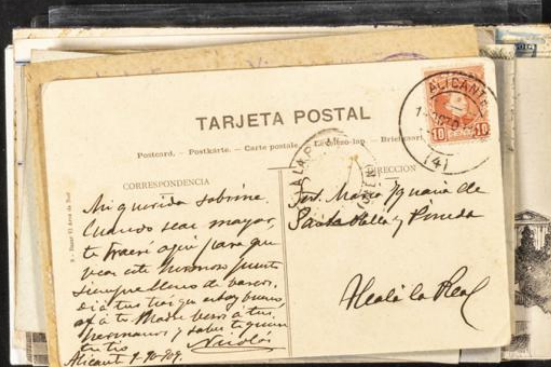 TARJETA POSTAL
Postcard. - Postkarte. - Carte postale.
CORRESPONDENCIA
DIRECCION
ALICANTE
10 10
(4)
Mi querida sobrina.
Cuando seas mayor,
te traeré aquí para que
veas este hermoso puerto
siempre lleno de barcos.
tus que estoy bueno,
a tu Madre besos á tus
hermanos y sabes te quiere
tu tio Nicolás
Alicante
Srta. María Ignacia de
Santaolalla y Pineda
Alcalá la Real